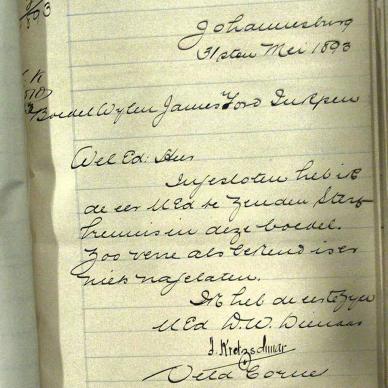 Johannesburg
31sten Mei 1893
Boedel Wylen James Ford Inkpen
Wel Ed: Heer
Ingesloten heb ik
de eer UEd te zenden Sterf
kennis in deze boedel.
Zoo verre als bekend is er
niets nagelaten.
Ik heb de eer te zyn
UEd D.W. Dienaar
J. Kretzschmar
Veld Corne